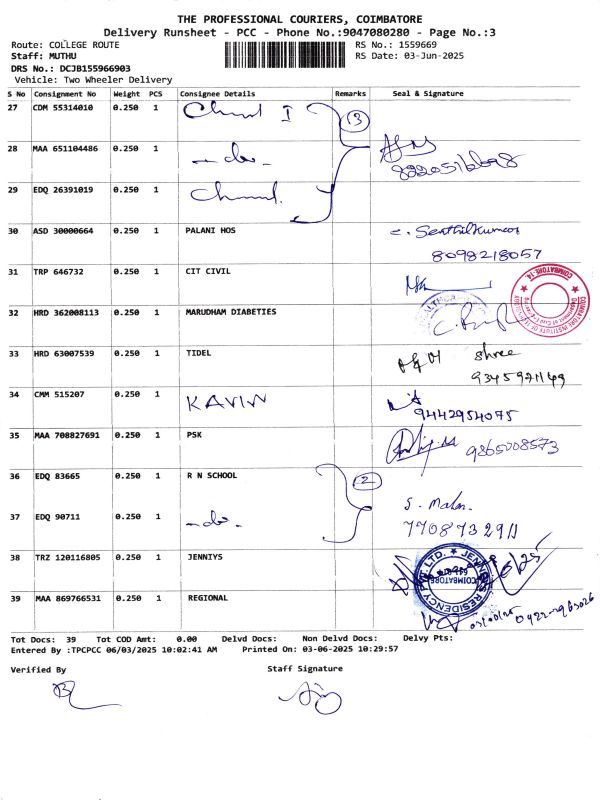 THE PROFESSIONAL COURIERS, COIMBATORE
Delivery Runsheet - PCC - Phone No.:9047080280 - Page No.:3
Route: COLLEGE ROUTE RS No.: 1559669
Staff: MUTHU RS Date: 03-Jun-2025
DRS No.: DCJB155966903
Vehicle: Two Wheeler Delivery
S No Consignment No Weight PCS Consignee Details Remarks Seal & Signature
27 CDM 55314010 0.250 1
3
28 MAA 651104486 0.250 1 -do-
29 EDQ 26391019 0.250 1
30 ASD 30000664 0.250 1 PALANI HOS C. Senthilkumar
8098218057
31 TRP 646732 0.250 1 CIT CIVIL
32 HRD 362008113 0.250 1 MARUDHAM DIABETIES
33 HRD 63007539 0.250 1 TIDEL shree
34 CMM 515207 0.250 1 KAVIN
9442954075
35 MAA 708827691 0.250 1 PSK 9865008573
36 EDQ 83665 0.250 1 R N SCHOOL 2
37 EDQ 90711 0.250 1 -do-
38 TRZ 120116805 0.250 1 JENNIYS
39 MAA 869766531 0.250 1 REGIONAL
Tot Docs: 39 Tot COD Amt: 0.00 Delvd Docs: Non Delvd Docs: Delvy Pts:
Entered By :TPCPCC 06/03/2025 10:02:41 AM Printed On: 03-06-2025 10:29:57
Verified By Staff Signature